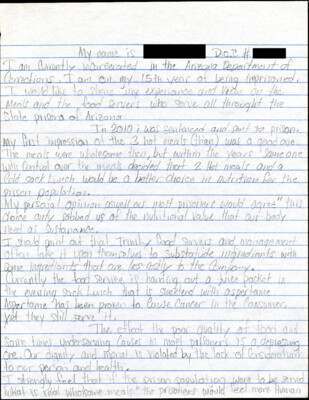 My name is D.O.C #
I am Currently incarcerated in the Arizona Department of
Corrections. I am on my 15th year of being imprisoned.
I would like to share my experience and view on the
Meals and the food servers who serve all throught the
State prisons of Arizona.
In 2010 i was sentenced and sent to prison.
My first impression of the 3 hot meals (than) was a good one.
The meals were wholesome then, but within the years someone
with Control over the meals decided that 2 Hot meals and a
Cold sack Lunch would be a better choice in nutrition for the
prison population.
My personal opinion as well as most prisoners would agree "this
choice only robbed us of the nutritional value that our body
need as Sustanance.
I should point out that Trinity food servers and management
often take it upon themselves to substatude ingrediants with
some ingrediants that are less costly to the Company.
Currently the food service is handing out a juice packet in
the evening sack Lunch that is Sweetend with aspertame
Aspertame has been proven to Cause Cancer in the Consumer,
yet they still serve it.
The effect the poor quality of food and
Some times underserving Causes in most prisoners is a depressing
one. Our dignity and moral is violated by the lack of Consideration
to our person and health.
I strongly feel that if the prison population were to be served
what is real wholesome meals" the prisoners would feel more Human